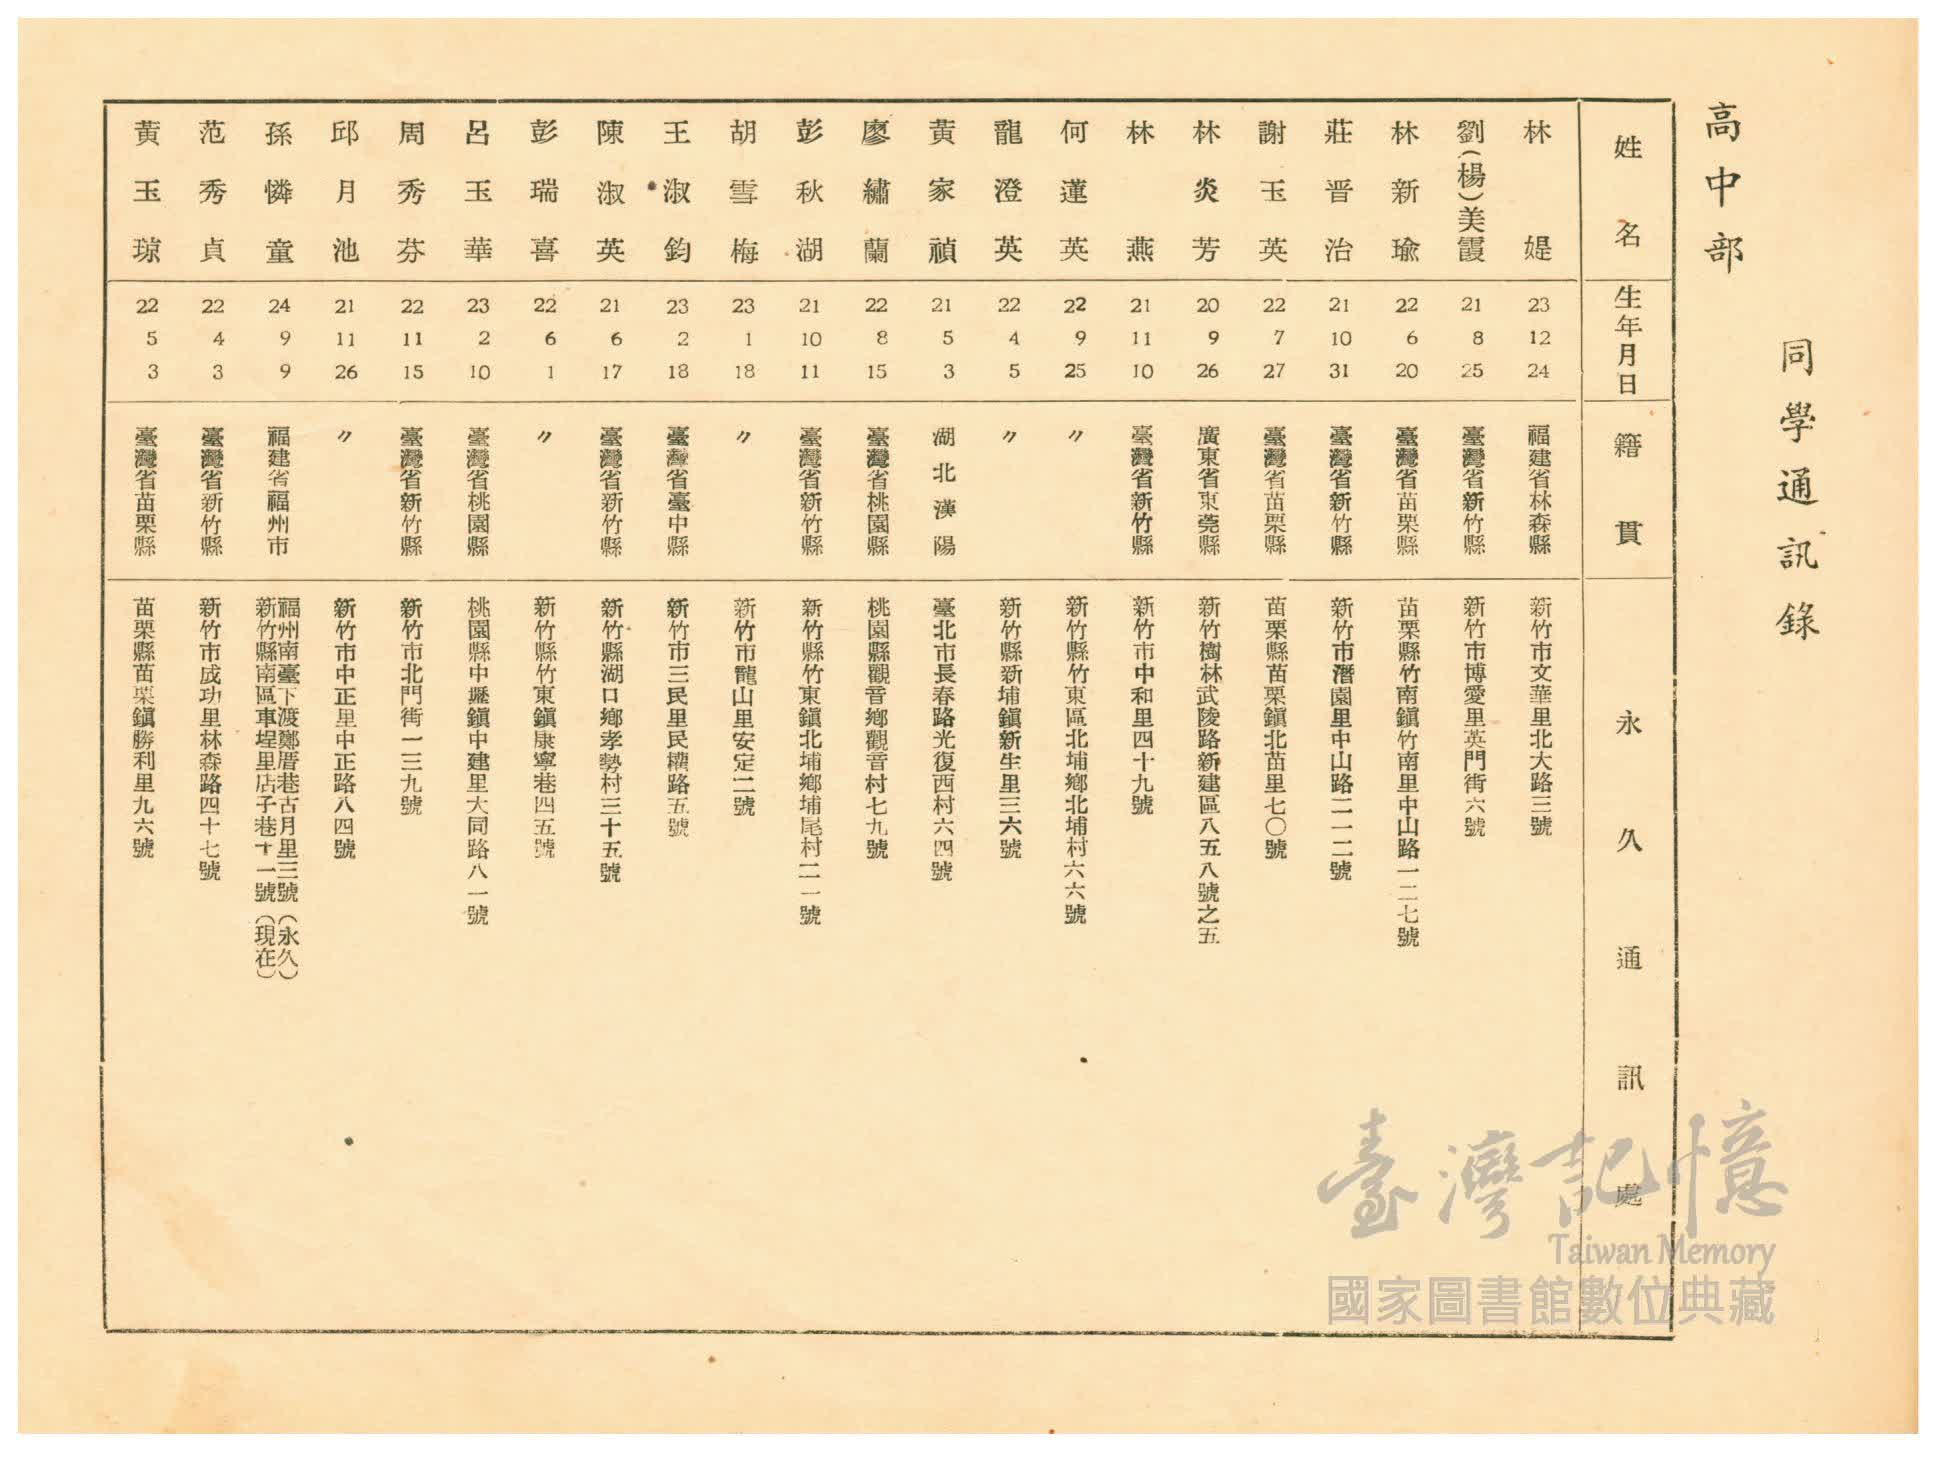 同學通訊錄
高中部
姓名 生年月日 籍貫 永久通訊處
林媞 23 12 24 福建省林森縣 新竹市文華里北大路三號
劉(楊)美霞 21 8 25 臺灣省新竹縣 新竹市博愛里英門街六號
林新瑜 22 6 20 臺灣省苗栗縣 苗栗縣竹南鎮竹南里中山路一二七號
莊晋治 21 10 31 臺灣省新竹縣 新竹市潛園里中山路二一二號
謝玉英 22 7 27 臺灣省苗栗縣 苗栗縣苗栗鎮北苗里七〇號
林炎芳 20 9 26 廣東省東莞縣 新竹樹林武陵路新建區八五八號之五
林燕 21 11 10 臺灣省新竹縣 新竹市中和里四十九號
何蓮英 22 9 25 〃 新竹縣竹東區北埔鄉北埔村六六號
龍澄英 22 4 5 〃 新竹縣新埔鎮新生里三六號
黃家禎 21 5 3 湖北漢陽 臺北市長春路光復西村六四號
廖繡蘭 22 8 15 臺灣省桃園縣 桃園縣觀音鄉觀音村七九號
彭秋湖 21 10 11 臺灣省新竹縣 新竹縣竹東鎮北埔鄉埔尾村二一號
胡雪梅 23 1 18 〃 新竹市龍山里安定二號
王淑鈞 23 2 18 臺灣省臺中縣 新竹市三民里民權路五號
陳淑英 21 6 17 臺灣省新竹縣 新竹縣湖口鄉孝勢村三十五號
彭瑞喜 22 6 1 〃 新竹縣竹東鎮康寧巷四五號
呂玉華 23 2 10 臺灣省桃園縣 桃園縣中壢鎮中建里大同路八一號
周秀芬 22 11 15 臺灣省新竹縣 新竹市北門街一三九號
邱月池 21 11 26 〃 新竹市中正里中正路八四號
孫憐童 24 9 9 福建省福州市 福州南臺下渡鄭厝巷古月里三號(永久)
新竹縣南區車埕里店子巷十一號(現在)
范秀貞 22 4 3 臺灣省新竹縣 新竹市成功里林森路四十七號
黃玉琼 22 5 3 臺灣省苗栗縣 苗栗縣苗栗鎮勝利里九六號
臺灣記憶
Taiwan Memory
國家圖書館數位典藏